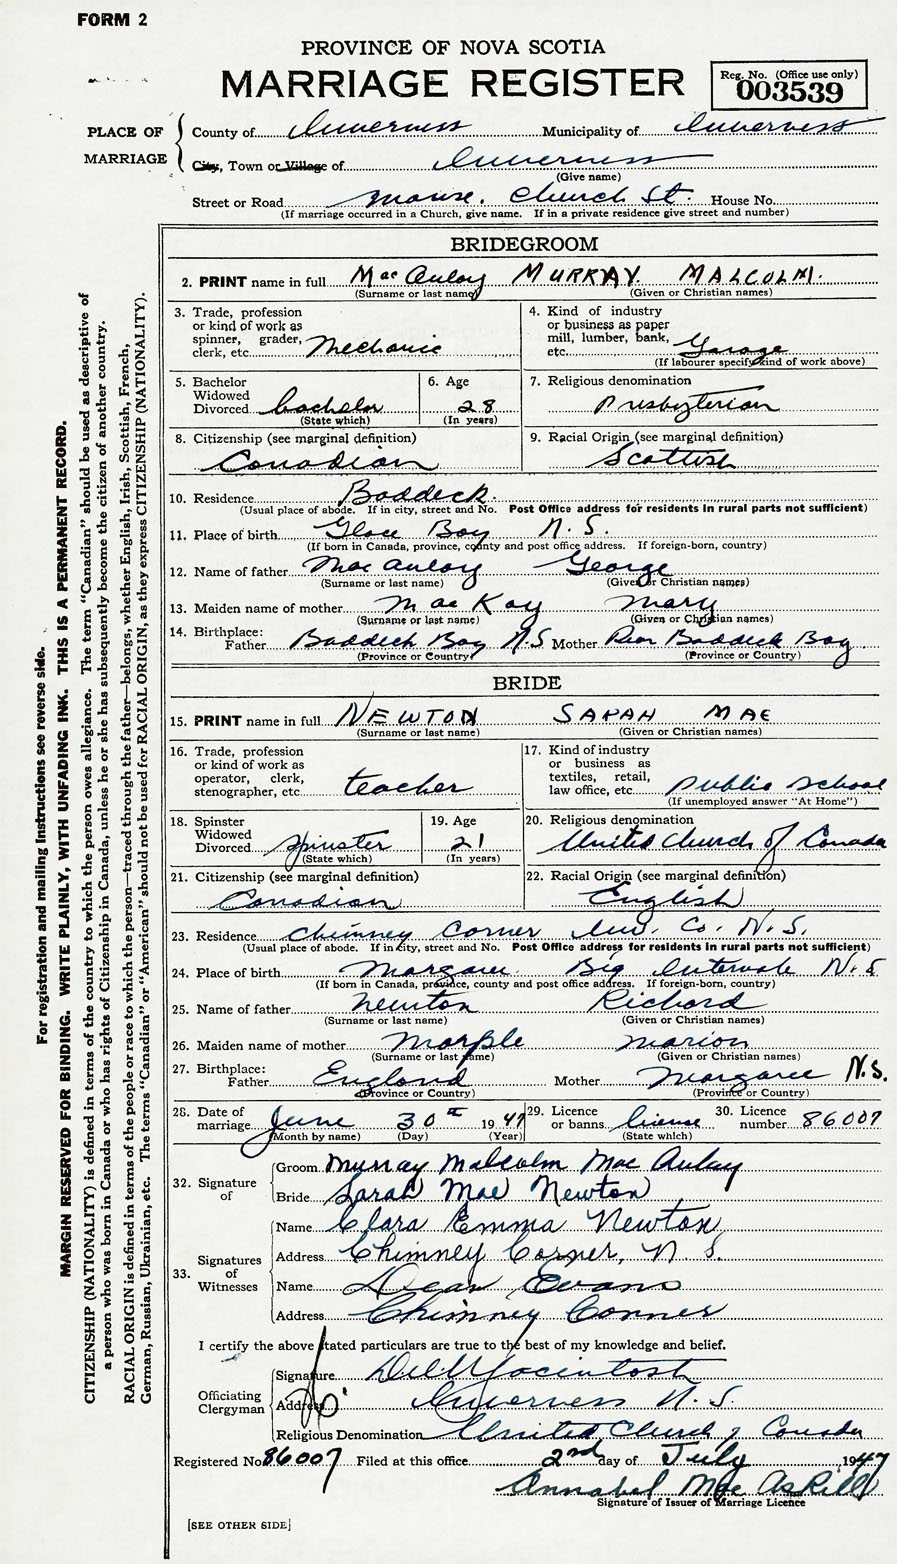 FORM 2
PROVINCE OF NOVA SCOTIA
MARRIAGE REGISTER
Reg. No. (Office use only)
003539
PLACE OF MARRIAGE
County of Inverness Municipality of Inverness
City, Town or Village of Inverness
(Give name)
Street or Road Manse. Church St. House No.
(If marriage occurred in a Church, give name. If in a private residence give street and number)
BRIDEGROOM
2. PRINT name in full MacAulay MURRAY MALCOLM.
(Surname or last name) (Given or Christian names)
3. Trade, profession or kind of work as spinner, grader, clerk, etc. Mechanic
4. Kind of industry or business as paper mill, lumber, bank, etc. Garage
(If labourer specify kind of work above)
5. Bachelor Widowed Divorced bachelor
(State which)
6. Age 28
(In years)
7. Religious denomination
Presbyterian
8. Citizenship (see marginal definition)
Canadian
9. Racial Origin (see marginal definition)
Scottish
10. Residence Baddeck.
(Usual place of abode. If in city, street and No. Post Office address for residents in rural parts not sufficient)
11. Place of birth Glace Bay N.S.
(If born in Canada, province, county and post office address. If foreign-born, country)
12. Name of father MacAulay George
(Surname or last name) (Given or Christian names)
13. Maiden name of mother MacKay Mary
(Surname or last name) (Given or Christian names)
14. Birthplace: Father Baddeck Bay N.S Mother Rear Baddeck Bay
(Province or Country) (Province or Country)
BRIDE
15. PRINT name in full NEWTON SARAH MAE
(Surname or last name) (Given or Christian names)
16. Trade, profession or kind of work as operator, clerk, stenographer, etc. teacher
17. Kind of industry or business as textiles, retail, law office, etc. Public School
(If unemployed answer "At Home")
18. Spinster Widowed Divorced Spinster
(State which)
19. Age 21
(In years)
20. Religious denomination
United Church of Canada
21. Citizenship (see marginal definition)
Canadian
22. Racial Origin (see marginal definition)
English
23. Residence Chimney Corner Inv. Co. N.S.
(Usual place of abode. If in city, street and No. Post Office address for residents in rural parts not sufficient)
24. Place of birth Margaree Big Intervale N.S.
(If born in Canada, province, county and post office address. If foreign-born, country)
25. Name of father Newton Richard
(Surname or last name) (Given or Christian names)
26. Maiden name of mother Marple Marion
(Surname or last name) (Given or Christian names)
27. Birthplace: Father England Mother Margaree N.S.
(Province or Country) (Province or Country)
28. Date of marriage June 30th 1947
(Month by name) (Day) (Year)
29. Licence or banns License
(State which)
30. Licence number 86007
32. Signature of
Groom Murray Malcolm MacAulay
Bride Sarah Mae Newton
33. Signatures of Witnesses
Name Clara Emma Newton
Address Chimney Corner, N.S.
Name Dean Evans
Address Chimney Corner
I certify the above stated particulars are true to the best of my knowledge and belief.
Officiating Clergyman
Signature Macintosh
Address Inverness N.S.
Religious Denomination United Church of Canada
Registered No. 86007 Filed at this office 2nd day of July 1947
Annabel MacAskill
Signature of Issuer of Marriage Licence
[SEE OTHER SIDE]
For registration and mailing instructions see reverse side.
MARGIN RESERVED FOR BINDING. WRITE PLAINLY, WITH UNFADING INK. THIS IS A PERMANENT RECORD.
CITIZENSHIP (NATIONALITY) is defined in terms of the country to which the person owes allegiance. The term "Canadian" should be used as descriptive of
a person who was born in Canada or who has rights of Citizenship in Canada, unless he or she has subsequently become the citizen of another country.
RACIAL ORIGIN is defined in terms of the people or race to which the person—traced through the father—belongs, whether English, Irish, Scottish, French,
German, Russian, Ukrainian, etc. The terms "Canadian" or "American" should not be used for RACIAL ORIGIN, as they express CITIZENSHIP (NATIONALITY).